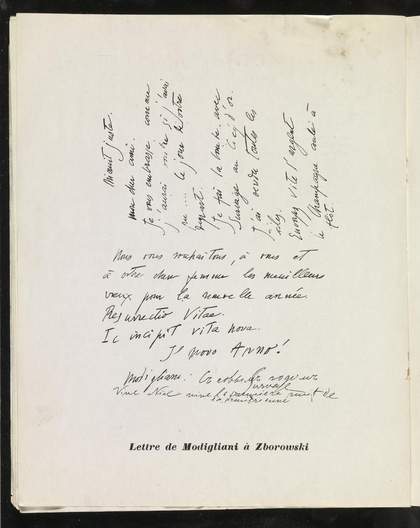 Minuit juste.
mon cher ami.
Je vous embrasse comme
j'aurai voulu si j'avais
pu ... le jour de votre
départ.
Je fais la bombe avec
Survage au Coq d'or.
J'ai vendu toutes les
toiles.
Envoyez vite l'argent
le Champagne coule à
flot.
Nous vous souhaitons, à vous et
à votre chère femme les meilleurs
vœux pour la nouvelle année.
Resurrectio Vitae.
Ic incipit vita nova.
Il novo Anno!
Modigliani.
Survage
Vive Nice vive la première nuit de